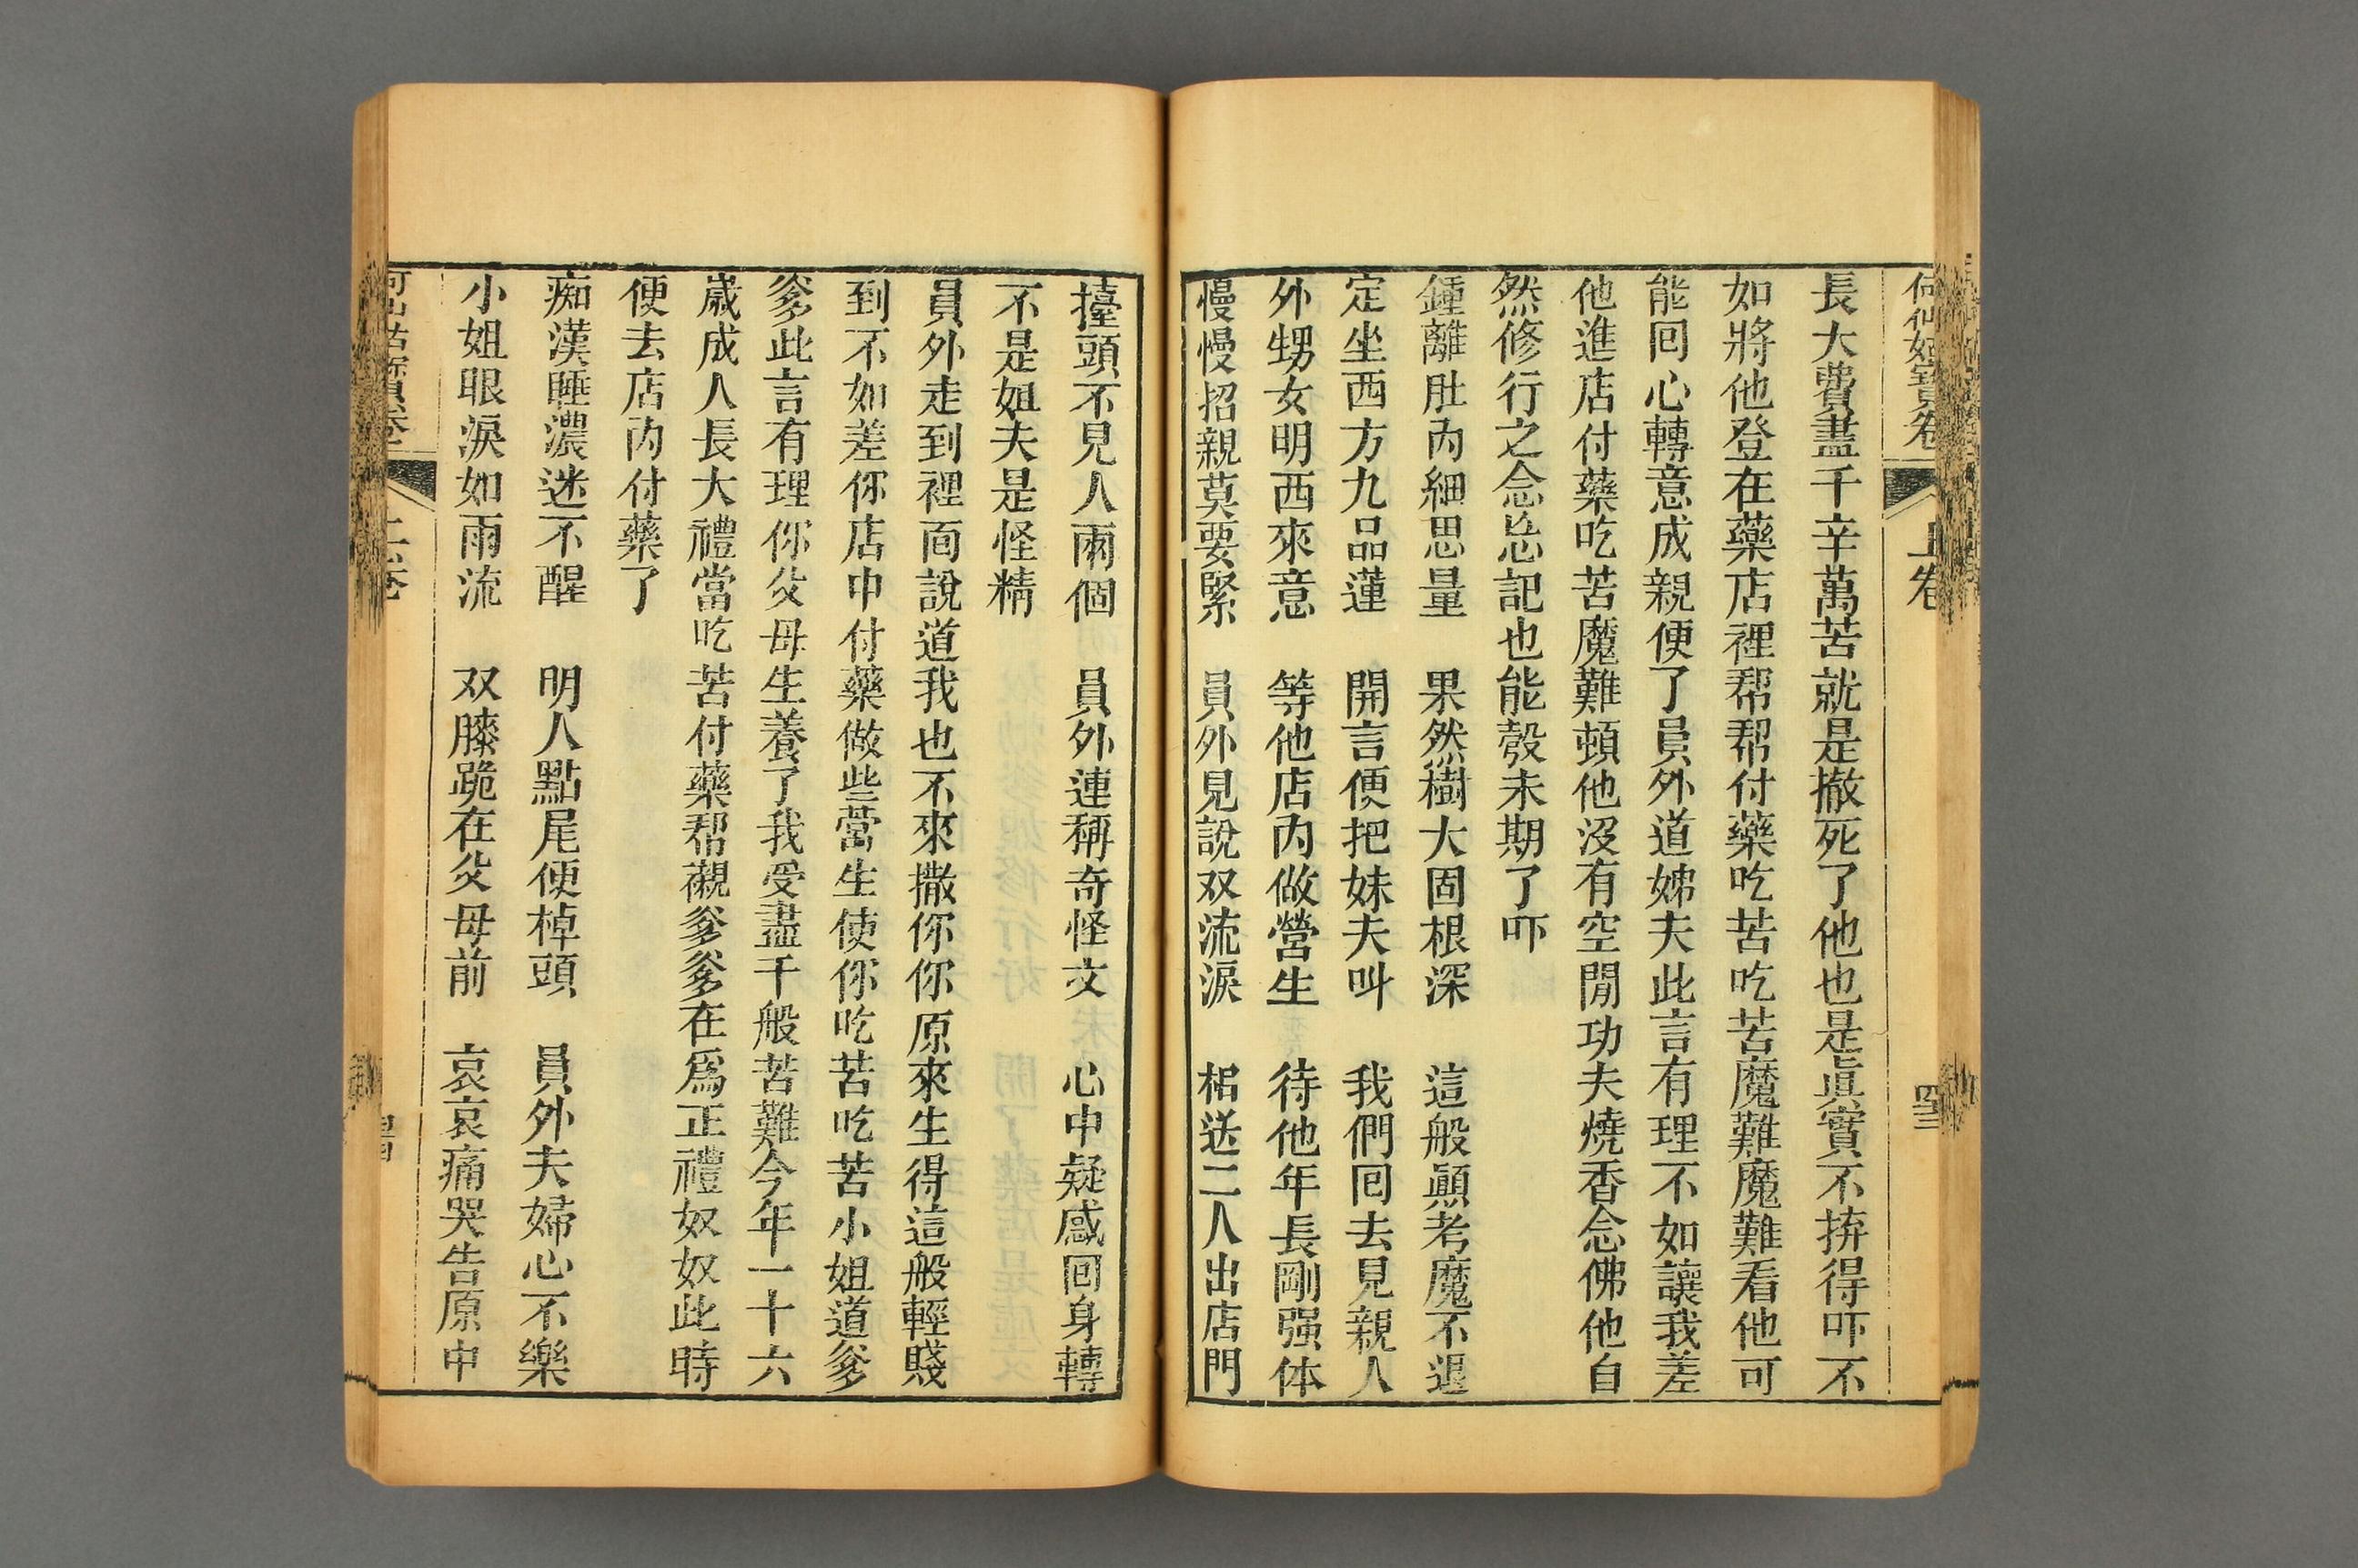 何仙姑寶卷 上卷
長大費盡千辛萬苦就是撤死了他也是眞實不拚得吓不
如將他登在藥店裡帮帮付藥吃苦吃苦魔難魔難看他可
能回心轉意成親便了員外道姊夫此言有理不如讓我差
他進店付藥吃苦魔難頓他沒有空閒功夫燒香念佛他自
然修行之念忘記也能彀未期了吓
鍾離肚內細思量 果然樹大固根深 這般顚考魔不退
定坐西方九品蓮 開言便把妹夫叫 我們囘去見親人
外甥女明西來意 等他店內做營生 待他年長剛强体
慢慢招親莫要緊 員外見說双流淚 相送二人出店門
擡頭不見人兩個 員外連稱奇怪文 心中疑惑回身轉
不是姐夫是怪精
員外走到裡面說道我也不來撒你你原來生得這般輕賤
到不如差你店中付藥做些營生使你吃苦吃苦小姐道爹
爹此言有理你父母生養了我受盡千般苦難今年一十六
歲成人長大禮當吃苦付藥帮襯爹爹在爲正禮奴奴此時
便去店內付藥了
痴漢睡濃迷不醒 明人點尾便棹頭 員外夫婦心不樂
小姐眼淚如雨流 双膝跪在父母前 哀哀痛哭告原中